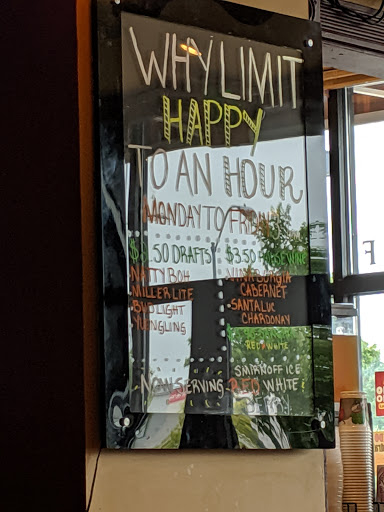 WHY LIMIT
HAPPY
TO AN HOUR
MONDAY TO FRIDAY
.50 DRAFTS $3.50 HOUSE WINE
NATTY BOH
MILLER LITE CABERNET
BUD LIGHT SANTA LUC
YUENGLING CHARDONAY
RED WHITE
SMIRNOFF ICE
NOW SERVING RED WHITE